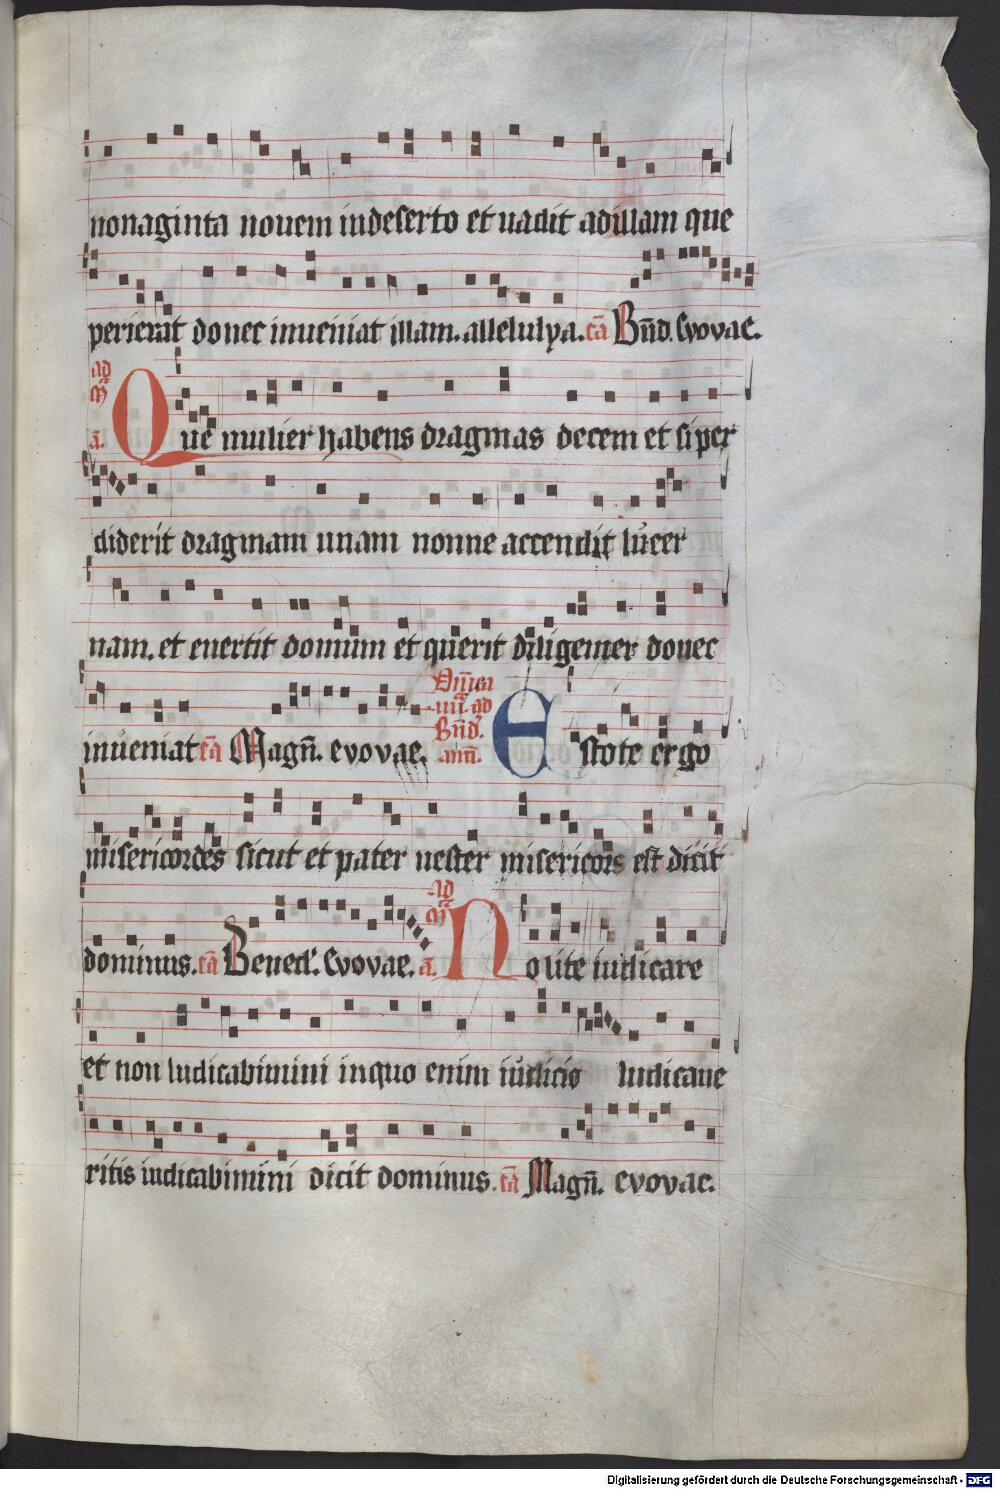 nonaginta nouem indeserto et uadit adillam que
perierat donec inueniat illam. allelulya. cā Bn̄d. Evovae.
ad
m̄
ā. Que mulier habens dragmas decem et si per
diderit dragmam unam nonne accendit lucer
nam. et euertit domum et querit diligenter donec
inueniat cā Magn̄. evovae. Dn̄ica
iiii. ad
Bn̄d.
an̄. Estote ergo
misericordes sicut et pater uester misericors est dicit
dominus. cā Bened. Evovae. ā. ad
m̄ Nolite iudicare
et non Iudicabimini inquo enim iudicio Iudicaue
ritis iudicabimini dicit dominus. cā Magn̄. evovae.
Digitalisierung gefördert durch die Deutsche Forschungsgemeinschaft - DFG